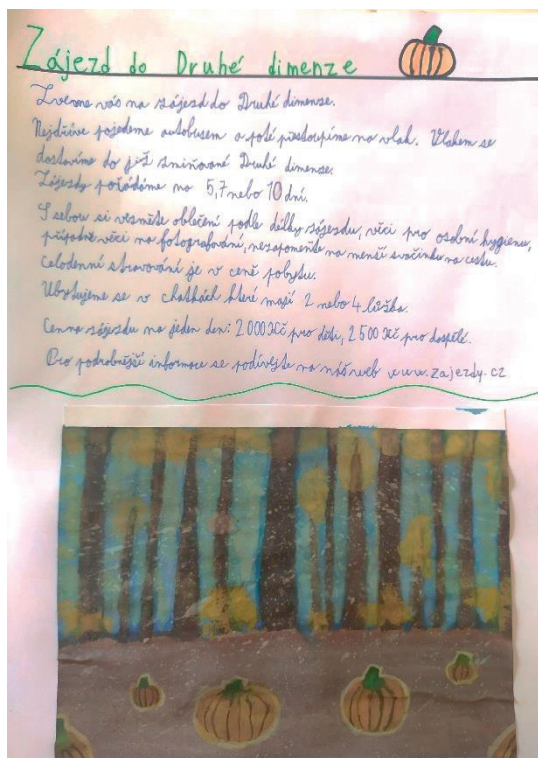 Zájezd do Druhé dimenze
Zveme vás na zájezd do Druhé dimenze.
Nejdříve pojedeme autobusem a poté přestoupíme na vlak. Vlakem se
dostavíme do již zmiňované Druhé dimenze.
Zájezdy pořádáme na 5,7 nebo 10 dní.
S sebou si vezměte oblečení podle délky zájezdu, věci pro osobní hygienu,
případně věci na fotografování, nezapomeňte na menší svačinku na cestu.
Celodenní stravování je v ceně pobytu.
Ubytujeme se v chatkách které mají 2 nebo 4 lůžka.
Cenna zájezdu na jeden den: 2 000 Kč pro děti, 2 500 Kč pro dospělé.
Pro podrobnější informace se podívejte na náš web www.zajezdy.cz